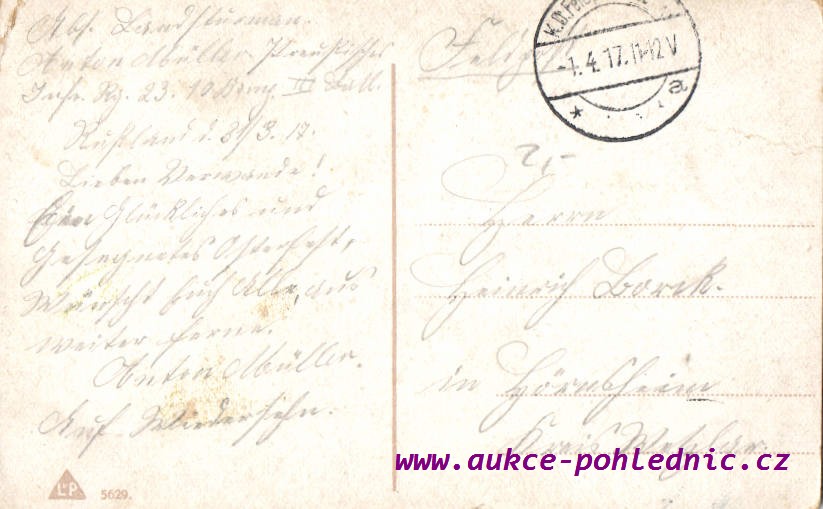 Abs. Landsturman.
Anton Müller. Preußisches
Infr. Rg. 23. 10 Komp. III Batl.
Rußland d. 31/3. 17.
Lieben Verwande!
Ein Glückliches und
Gesegnetes Osterfest,
Wünscht Euch Alle, aus
weiter ferne.
Anton Müller.
Auf Wiedersehn.
L&P
5629.
Feldpost
-1.4.17.11-12V
* a
2,-
Herrn
Heinrich Borck.
in Hörnsheim
Kreis Wetzlar
www.aukce-pohlednic.cz